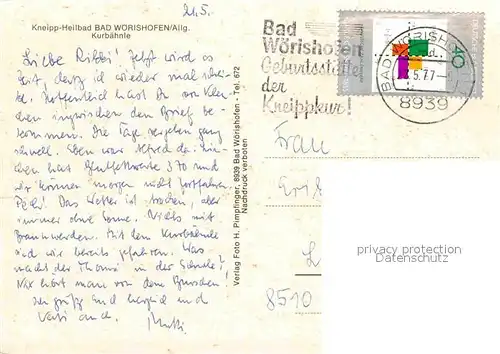 21.5.
Kneipp-Heilbad BAD WÖRISHOFEN/Allg.
Kurbähnle
Liebe Rikki! Jetzt wird es
Zeit, daß ich wieder mal schrei-
be. Hoffentlich hast Du von
inzwischen den Brief be-
kommen. Die Tage vergehen ganz
schnell. Eben war Alfred da.
hat 370 und
wir können morgen nicht fortfahren.
Pech! Das Wetter ist trocken, aber
immer ohne Sonne. Nichts mit
Braunwerden. Mit dem Kurbähnle
sind wir bereits gefahren. Was
macht der Thomas in der Schule?
hört man von dem Burschen
grüßt Euch herzlich und
Vati auch. Mutti
Verlag Foto H. Pimpfinger, 8939 Bad Wörishofen - Tel. 672
Nachdruck verboten
Bad
Wörishofen
Geburtsstätte
der
Kneippkur!
BAD WÖRISHOFEN
5.77
8939
40
Frau
8510
privacy protection
Datenschutz